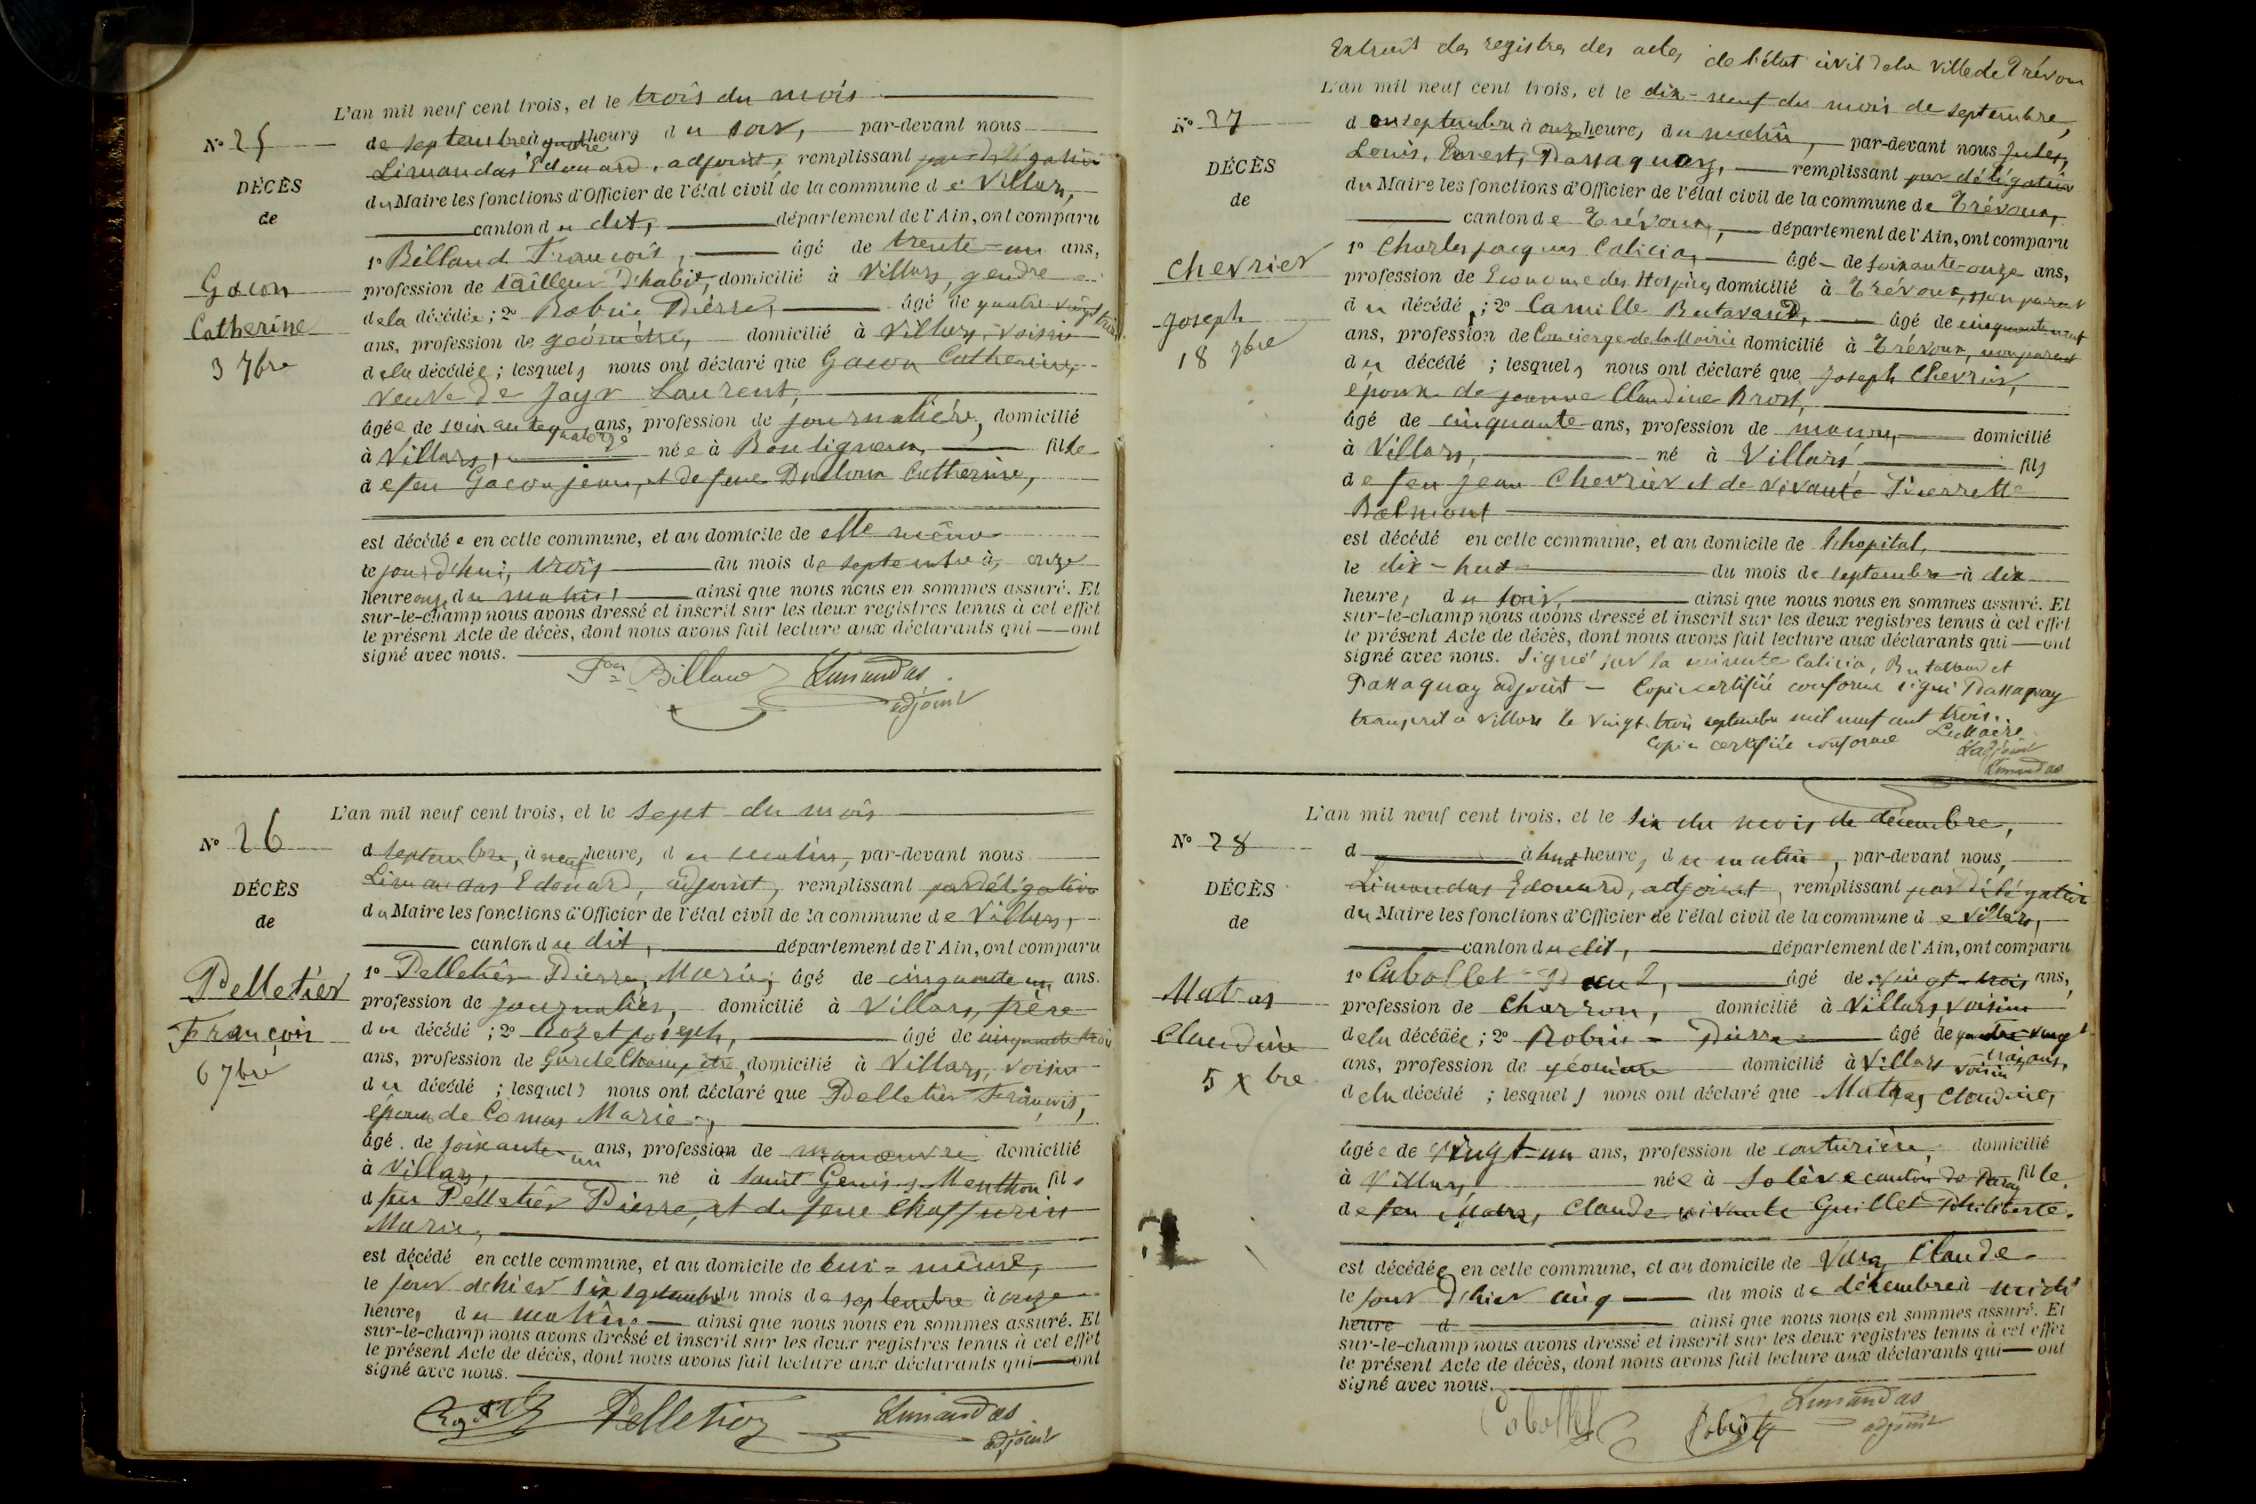 L'an mil neuf cent trois, et le trois du mois
N° 25
de septembre à quatre heures du soir, par-devant nous
Limandas Edouard, adjoint, remplissant par délégation
DÉCÈS
du Maire les fonctions d'Officier de l'état civil de la commune de Villars,
de
canton du dit, département de l'Ain, ont comparu
1° Billand François, âgé de trente-un ans,
Gacon
profession de tailleur d'habit, domicilié à Villars, gendre
Catherine
de la décédée; 2° Robin Pierre, âgé de quatre vingt trois
ans, profession de géomètre, domicilié à Villars, voisin
3 7bre
de la décédée; lesquels nous ont déclaré que Gacon Catherine,
veuve de Jayr Laurent,
âgée de soixante quatorze ans, profession de journalière, domicilié
à Villars, née à Bouligneux, fille
de feu Gacon jean, et de feue Ducloux Catherine,
est décédée en cette commune, et au domicile de elle même
le jourd'hui, trois du mois de septembre à onze
heures du matin, ainsi que nous nous en sommes assuré. Et
sur-le-champ nous avons dressé et inscrit sur les deux registres tenus à cet effet
le présent Acte de décès, dont nous avons fait lecture aux déclarants qui ont
signé avec nous.
Billand Limandas
adjoint
L'an mil neuf cent trois, et le sept du mois
N° 26
d septembre, à neuf heures, du matin, par-devant nous
Limandas Edouard, adjoint, remplissant par délégation
DÉCÈS
du Maire les fonctions d'Officier de l'état civil de la commune de Villars,
de
canton du dit, département de l'Ain, ont comparu
1° Pelletier Pierre, Marie, âgé de cinquante un ans.
Pelletier
profession de journalier, domicilié à Villars, frère
François
du décédé; 2° Rozet joseph, âgé de cinquante trois
ans, profession de Garde Champêtre, domicilié à Villars, voisin
6 7bre
du décédé; lesquels nous ont déclaré que Pelletier François,
époux de Comas Marie,
âgé de soixante-un ans, profession de manoeuvre domicilié
à Villars, né à Saint Genis s. Menthon fils
d feu Pelletier Pierre, et de feue Chaffurin
Marie,
est décédé en cette commune, et au domicile de lui-même,
le jour dehier six septembre du mois de septembre à onze
heures du matin, ainsi que nous nous en sommes assuré. Et
sur-le-champ nous avons dressé et inscrit sur les deux registres tenus à cet effet
le présent Acte de décès, dont nous avons fait lecture aux déclarants qui ont
signé avec nous.
Rozet Pelletier Limandas
adjoint
Extrait des registres des actes de l'état civil de la ville de Trévoux
L'an mil neuf cent trois, et le dix-neuf du mois de septembre,
N° 27
d en septembre à onze heures, du matin, par-devant nous Jules,
Louis, Ernest, Passaquay, remplissant par délégation
DÉCÈS
du Maire les fonctions d'Officier de l'état civil de la commune de Trévoux,
de
canton de Trévoux, département de l'Ain, ont comparu
1° Charles jacques Calicia, âgé de soixante-onze ans,
Chevrier
profession de Econome des Hospices domicilié à Trévoux, non parent
Joseph
du décédé; 2° Camille Butavand, âgé de cinquante neuf
ans, profession de Concierge de la Mairie domicilié à Trévoux, non parent
18 7bre
du décédé; lesquels nous ont déclaré que Joseph Chevrier,
époux de jeanne Claudine Brost,
âgé de cinquante ans, profession de maçon, domicilié
à Villars, né à Villars fils
de feu jean Chevrier et de vivante Pierrette
Balmont
est décédé en cette commune, et au domicile de l'hopital,
le dix-huit du mois de septembre à dix
heures du soir, ainsi que nous nous en sommes assuré. Et
sur-le-champ nous avons dressé et inscrit sur les deux registres tenus à cet effet
le présent Acte de décès, dont nous avons fait lecture aux déclarants qui ont
signé avec nous. Signé sur la minute Calicia, Butavand et
Passaquay adjoint - Copie certifiée conforme signé Passaquay
transcrit à Villars le vingt-trois septembre mil neuf cent trois.
Copie certifiée conforme Le Maire
L'adjoint
Limandas
L'an mil neuf cent trois, et le six du mois de décembre,
N° 28
d à huit heures, du matin, par-devant nous,
Limandas Edouard, adjoint, remplissant par délégation
DÉCÈS
du Maire les fonctions d'Officier de l'état civil de la commune de Villars,
de
canton du dit, département de l'Ain, ont comparu
1° Cabollet Paul, âgé de vingt-trois ans,
Matras
profession de charron, domicilié à Villars, voisin
Claudine
de la décédée; 2° Robin - Pierre âgé de quatre-vingt
trois ans,
ans, profession de géomètre domicilié à Villars voisin
5 Xbre
de la décédé; lesquels nous ont déclaré que Matras Claudine,
âgée de vingt-un ans, profession de couturière, domicilié
à Villars, née à Solère canton de Paray fille.
de feu Matras, Claude vivante Guillet Philiberte.
est décédée en cette commune, et au domicile de Claude
le jour d'hier cinq du mois de décembre à midi
heure d ainsi que nous nous en sommes assuré. Et
sur-le-champ nous avons dressé et inscrit sur les deux registres tenus à cet effet
le présent Acte de décès, dont nous avons fait lecture aux déclarants qui ont
signé avec nous.
Cabollet Robin Limandas
adjoint